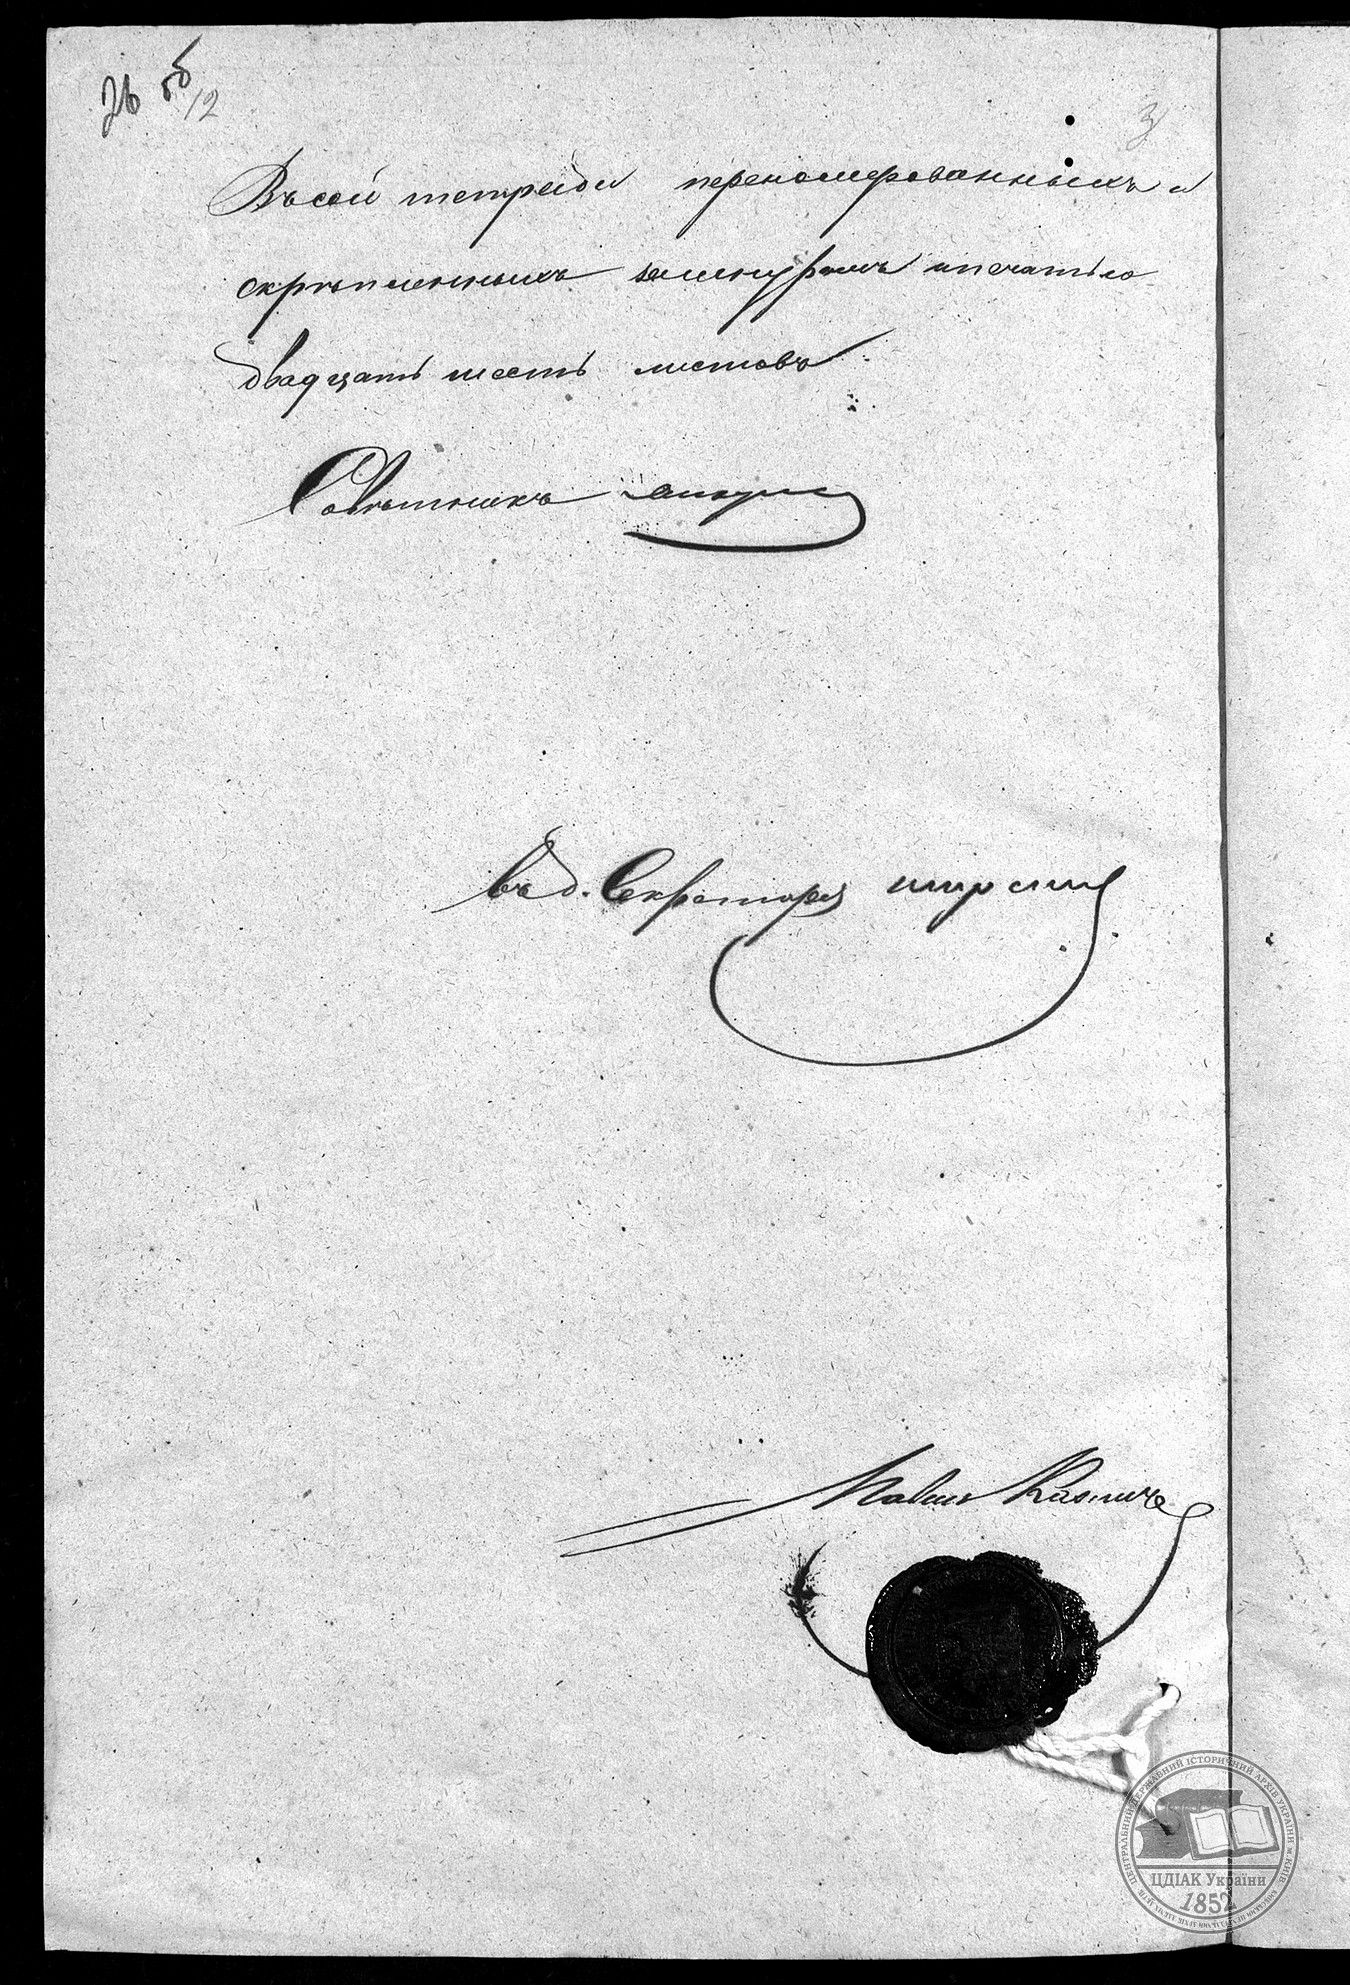 26 об
12
Въ сей тетради переномерованныхъ и
скрѣпленныхъ шнуромъ и печатью
двадцать шесть листовъ
Совѣтникъ
въ д. Секретаря
ЦЕНТРАЛЬНИЙ ДЕРЖАВНИЙ ІСТОРИЧНИЙ АРХІВ УКРАЇНИ м. КИЇВ
ЦДІАК України
1852